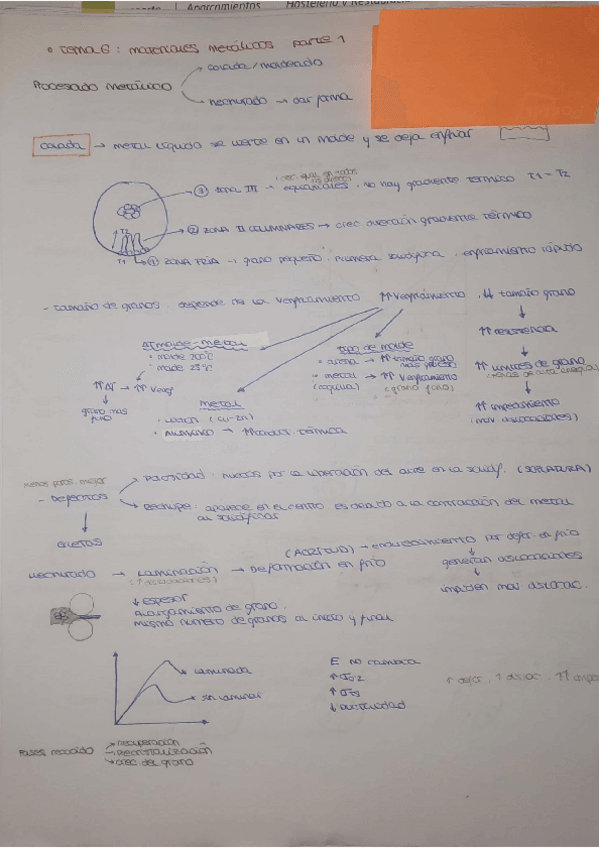 Aparcamientos Hostelería y Restaura
• Tema 6: materiales metálicos parte 1
Procesado metálico
colada/moldeado
mecanizado → dar forma
colada → metal líquido se vierte en un molde y se deja enfriar
③ zona III → equiaxiales, no hay gradiente térmico T1 = T2
② ZONA II COLUMNARES → crec dirección gradiente térmico
T2
T1
① ZONA FRÍA → grano pequeño, primera solidifica, enfriamiento rápido
- Tamaño de granos: depende de la Venfriamiento ⇈ Venfriamiento, ⇊ tamaño grano
ΔT molde-metal
• molde 200°C
• molde 25°C
⇈ ΔT → ⇈ Venf
grano más fino
Metal
• Latón (Cu-Zn)
• Aluminio → ⇈ conduc térmica
Tipo de molde
• arena → ⇈ tamaño grano
• metal → ⇈ Venfriamiento
(coquilla) (grano fino)
⇈ resistencia
⇈ límites de grano
(zonas de alta energía)
⇈ impedimento
(mov dislocaciones)
menos poros, mejor
- Defectos
Porosidad: huecos por la liberación del aire en la solidif. (SOPLADURA)
Rechupe: aparece en el centro, es debido a la contracción del metal
al solidificar
grietas
Mecanizado → Laminación → Deformación en frío
(ACRITUD) → endurecimiento por defor. en frío
generan dislocaciones
impiden mov disloc.
↓ espesor
alargamiento de grano
mismo número de granos al inicio y final
laminada
sin laminar
E no cambia
↓ ductilidad
↑ defor, ↑ disloc, ⇈
Fases recocido
recuperación
Recristalización
crec del grano